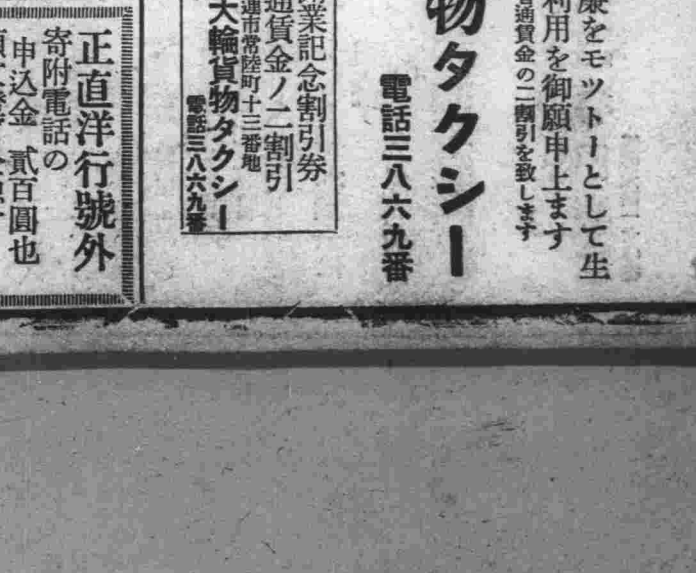 廉をモツトーとして生
利用を御願申上ます
普通賃金の二割引を致します
物タクシー
電話三八六九番
業記念割引券
通賃金ノ二割引
連市常陸町十三番地
大輪貨物タクシー
電話三八六九番
正直洋行號外
寄附電話の
申込金 貳百圓也